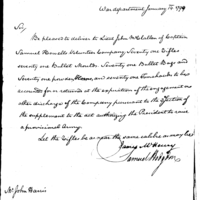 War department January 10 179
Sir,
Be pleased to deliver to Lieut John McClellan of Captain
Samuel Volunteer Company Seventy One Rifles
seventy one Bullet Moulds Seventy one Bullet Bags and
Seventy one powder Horns, and seventy one to be
accounted for or returned at the expiration of the engagement or
discharge of the Company pursuant to the of
the supplement to the act authorizing the President to raise
a provisional Army.
Let the Rifles be as near the same calibre as may be
James McHenry
Samuel Hodgdon
Mr John Harris